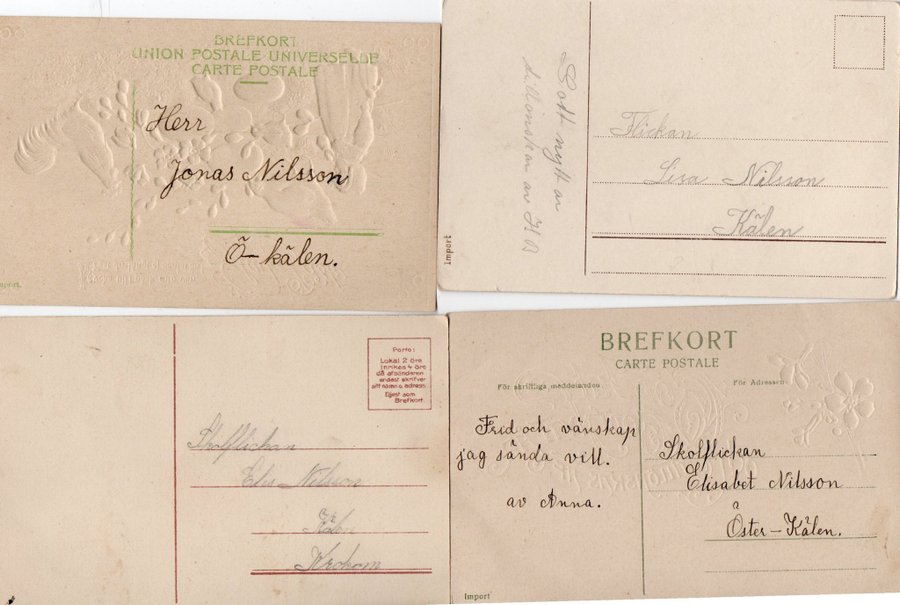 BREFKORT
UNION POSTALE UNIVERSELLE
CARTE POSTALE
Herr
Jonas Nilsson
Ö-kälen.
mport.
Gott nytt år
tillönskan av H A
Flickan
Lisa Nilsson
Kälen
Import
Porto:
Lokal 2 öre
Inrikes 4 öre
då afsändaren
endast skrifver
sitt namn o. adress.
Eljest som
Brefkort.
Skolflickan
Elis Nilsson
Kälen
Krokom
BREFKORT
CARTE POSTALE
För skriftliga meddelanden.
För Adressen.
Frid och vänskap
jag sända vill.
av Anna.
Skolflickan
Elisabet Nilsson
å
Öster-Kälen.
Import